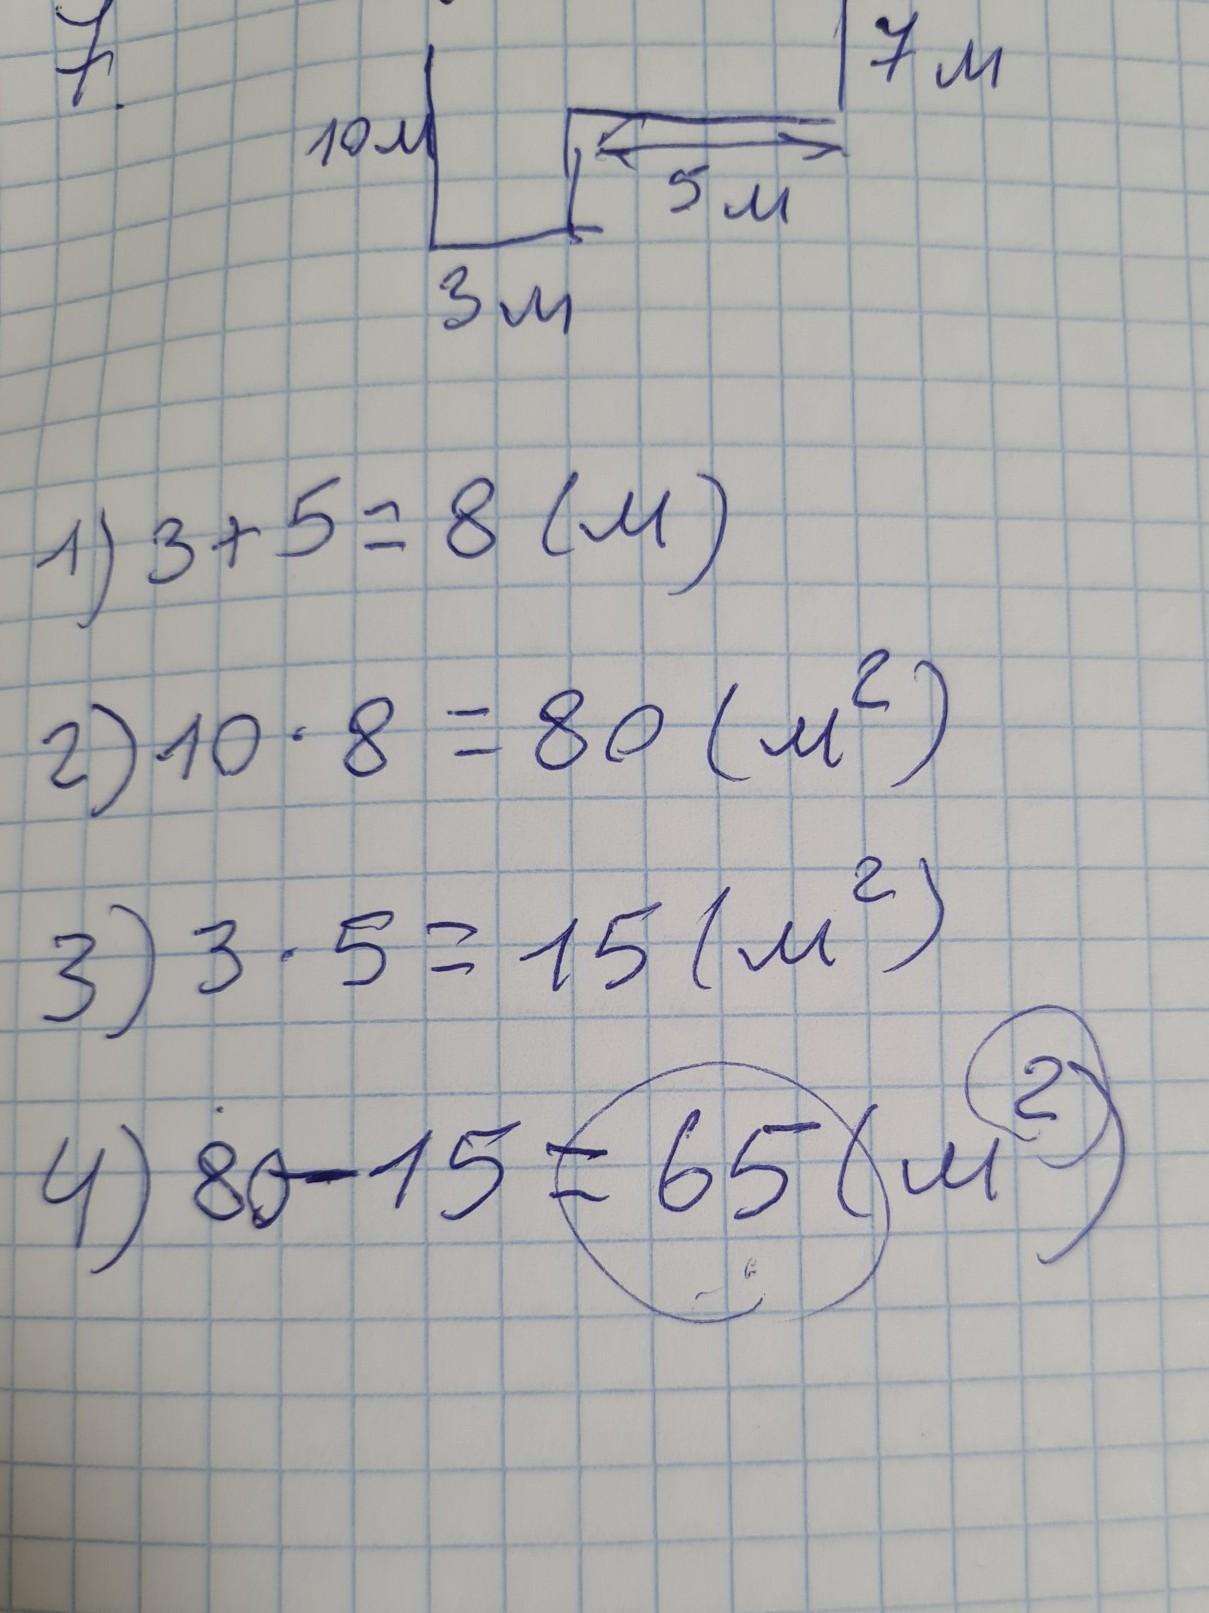 7.
7 м
10 м
5 м
3 м
1) 3 + 5 = 8 (м)
2) 10 · 8 = 80 (м²)
3) 3 · 5 = 15 (м²)
4) 80 - 15 = 65 (м²)